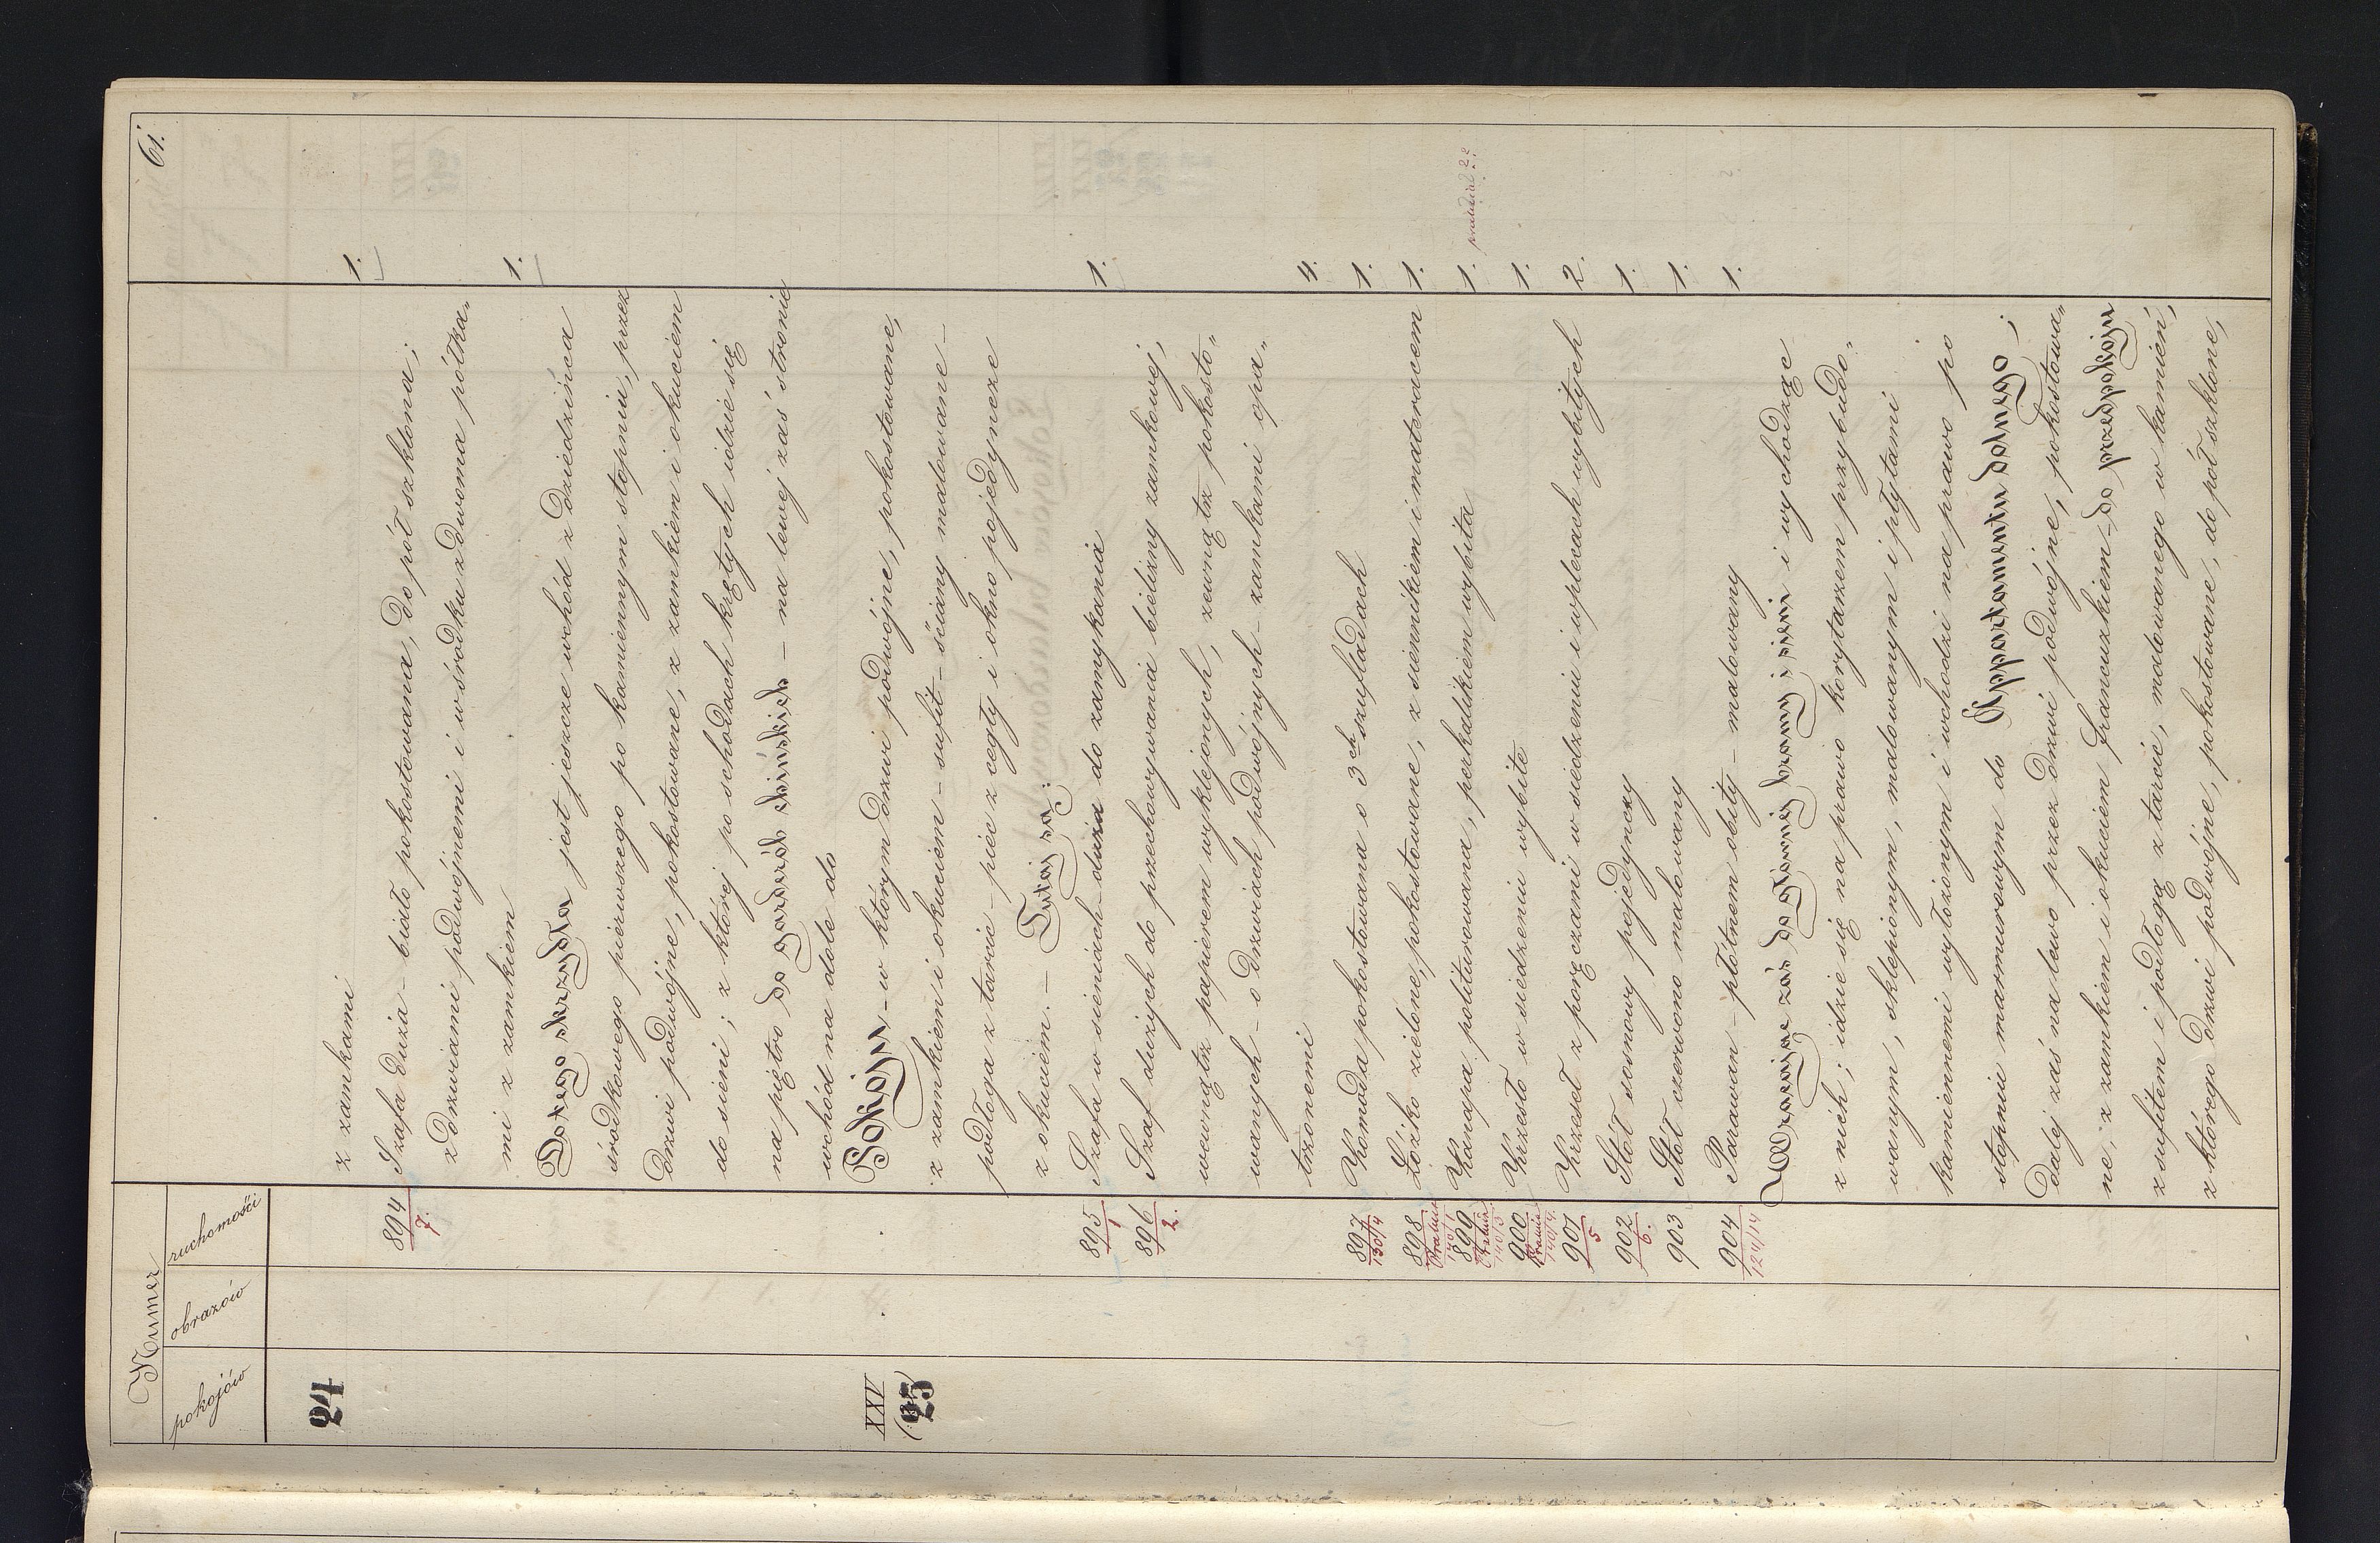 61.
Numer
pokojów obrazów ruchomości
24 z zamkami 1.
894/7. Szafa duża – biało pokostowana, do pół szklona;
z drzwiami podwójnemi i w środku z dwoma półka„
mi z zamkiem 1.
Do tego skrzydła jest jeszcze wchód z dziedzińca
środkowego pierwszego po kamiennym stopniu, przez
drzwi podwójne, pokostowane, z zamkiem i okuciem
do sieni; z której po schodach krętych idzie się
na piętro do garderób – na lewej zaś stronie
wchód na dole do
XXV (25) Pokoju – w którym drzwi podwójne, pokostowane,
z zamkiem i okuciem – sufit – ściany malowane –
podłoga z tarcic – piec z cegły i okno pojedyncze
z okuciem. – Tutaj są:
895/1 Szafa w sieniach duża do zamykania 1.
896/2. Szaf dużych do przechowywania bielizny zamkowej,
wewnątrz papierem wyklejonych, zewnątrz pokosto„
wanych – o drzwiach podwójnych – zamkami opa„
trzonemi 4.
897 130/14 Komoda pokostowana o 3ch szufladach 1.
898 170/1 Łóżko zielone, pokostowane, z siennikiem i materacem 1.
899 140/3 Kanapa politurowana, perkalikiem wybita 1.
900 140/4. Krzesło w siedzeniu wybite 1.
901/5 Krzeseł z poręczami w siedzeniu i w plecach wybitych 2.
902/6. Stół sosnowy pojedynczy 1.
903 Stół czerwono malowany 1.
904 124/14 Parawan – płótnem obity – malowany 1.
Wracając zaś do głównej bramy i sieni i wychodząc
z nich; idzie się na prawo korytarzem przybudo„
wanym, sklepionym, malowanym i płytami
kamiennemi wyłożonym i wchodzi na prawo po
stopniu marmurowym do Appartamentu dolnego;
dalej zaś na lewo przez drzwi podwójne, pokostowa„
ne, z zamkiem i okuciem francuzkiem – do przedpokoju
z sufitem i podłogą z tarcic, malowanego w kamień,
z którego drzwi podwójne, pokostowane, do pół szklone,